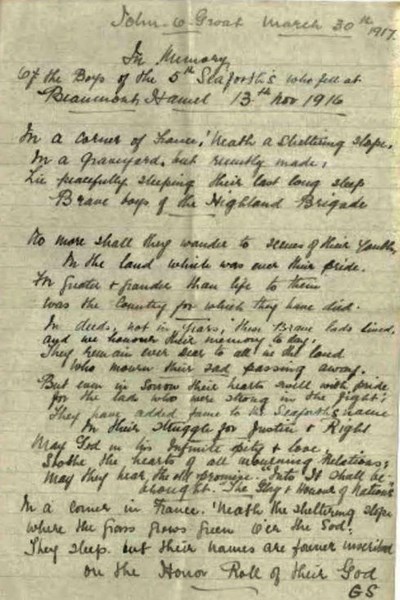 John O Groat March 30th 1917.
In Memory
Of the Boys of the 5th Seaforths who fell at
Beaumont Hamel 13th Nov 1916
In a corner of France, 'Neath a sheltering slope,
In a graveyard, but recently made,
Lie peacefully sleeping their last long sleep
Brave boys of the Highland Brigade
No more shall they wander to scenes of their Youth,
In the land which was ever their pride.
For greater & grander than life to them
Was the Country for which they have died.
In deeds, not in years, these Brave lads lived,
and we honour their memory to day,
They remain ever dear to all in the land
Who mourn their sad passing away.
But even in sorrow their hearts swell with pride
for the lads who were strong in the fight;
They have added fame to the Seaforths name
In their struggle for Justice & Right
May God in his Infinite pity & love
Soothe the hearts of all mourning Relations;
May they hear the old promise It shall be
The Glory & Honour of Nations
In a corner in France. 'Neath the sheltering slope
where the Grass Grows Green O'er the Sod.
They sleep. but their names are inscribed
on the Honor Roll of their God
GS